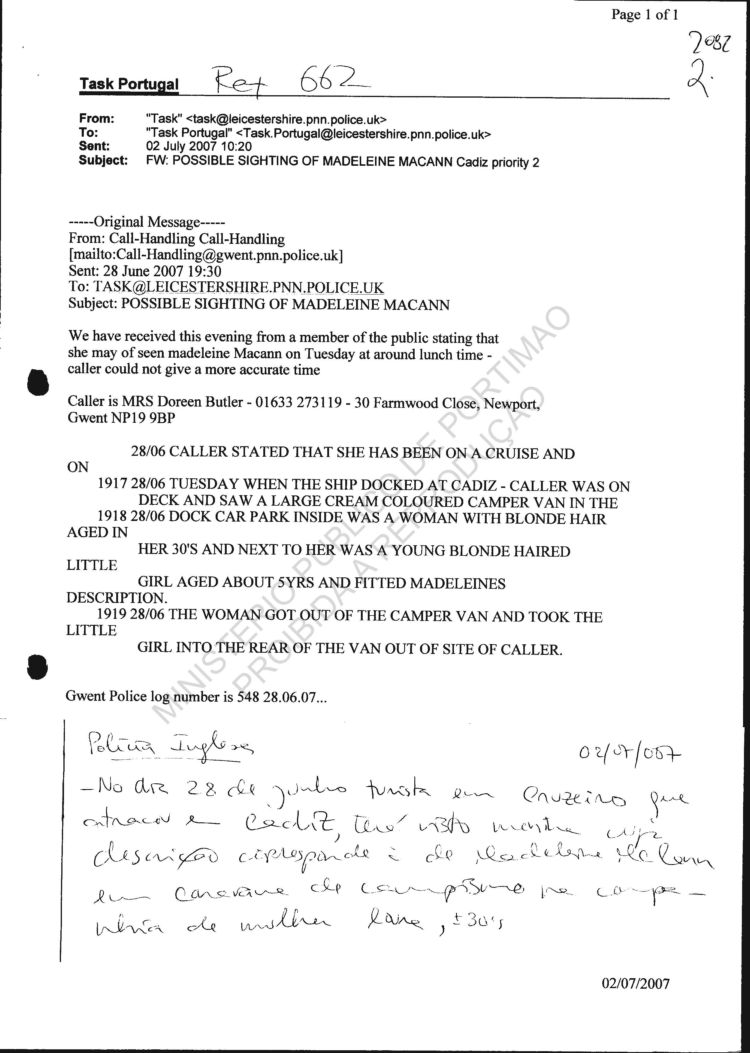 Page 1 of 1
2082
2.
Task Portugal Ref 662
From: "Task" <task@leicestershire.pnn.police.uk>
To: "Task Portugal" <Task.Portugal@leicestershire.pnn.police.uk>
Sent: 02 July 2007 10:20
Subject: FW: POSSIBLE SIGHTING OF MADELEINE MACANN Cadiz priority 2
-----Original Message-----
From: Call-Handling Call-Handling
[mailto:Call-Handling@gwent.pnn.police.uk]
Sent: 28 June 2007 19:30
To: TASK@LEICESTERSHIRE.PNN.POLICE.UK
Subject: POSSIBLE SIGHTING OF MADELEINE MACANN
We have received this evening from a member of the public stating that
she may of seen madeleine Macann on Tuesday at around lunch time -
caller could not give a more accurate time
Caller is MRS Doreen Butler - 01633 273119 - 30 Farmwood Close, Newport,
Gwent NP19 9BP
28/06 CALLER STATED THAT SHE HAS BEEN ON A CRUISE AND
ON
1917 28/06 TUESDAY WHEN THE SHIP DOCKED AT CADIZ - CALLER WAS ON
DECK AND SAW A LARGE CREAM COLOURED CAMPER VAN IN THE
1918 28/06 DOCK CAR PARK INSIDE WAS A WOMAN WITH BLONDE HAIR
AGED IN
HER 30'S AND NEXT TO HER WAS A YOUNG BLONDE HAIRED
LITTLE
GIRL AGED ABOUT 5YRS AND FITTED MADELEINES
DESCRIPTION.
1919 28/06 THE WOMAN GOT OUT OF THE CAMPER VAN AND TOOK THE
LITTLE
GIRL INTO THE REAR OF THE VAN OUT OF SITE OF CALLER.
MINISTERIO PUBLICO DE PORTIMAO
PROIBIDA A REPRODUÇÃO
Gwent Police log number is 548 28.06.07...
Policia Inglesa 02/07/007
- No dia 28 de junho turista em Cruzeiro que
atracou em Cadiz, terá visto menina cuja
descrição corresponde à de Madeleine McCann
em caravana de campismo na compa-
nhia de mulher loira, ±30's
02/07/2007